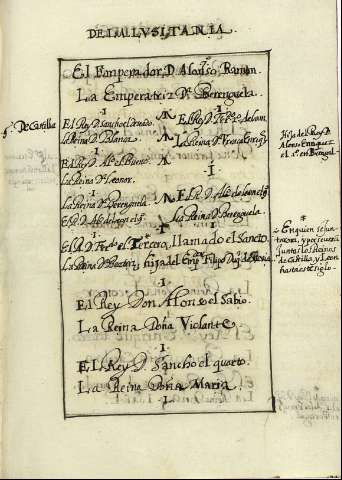 DEL LVSITANIA.
El Emperador D. Alonso Ramon.
La Emperatriz D.ª Berenguela.
De Castilla
El Rey D. Sancho el
El Rey D. Fer.do de Leon
La Reina D. Blanca.
La Reina D.ª Vrraca Enriq̃z
Hija del Rey D.
Alonso Enriquez
el 1.º en
El Rey D. Al.º el Bueno.
La Reina D. Leonor.
I
La Reina D.ª Berenguela
El R. D. Al.º de Leon el 9.
El R. D. Al.º de Leon el 9.
La Reina D. Berenguela
El R. D. Fer.do el Tercero, llamado el Sancto
La Reina D. Beatriz, hija del Emp.r Filipo Duq̃ de
*
En quien se jun
taron, y perseveran
juntos los Reinos
de Castilla, y Leon
hasta este siglo.
I
El Rey Don Alfonso el Sabio.
La Reina Doña Violante.
I
El Rey D. Sancho el quarto.
La Reina Doña Maria.
I